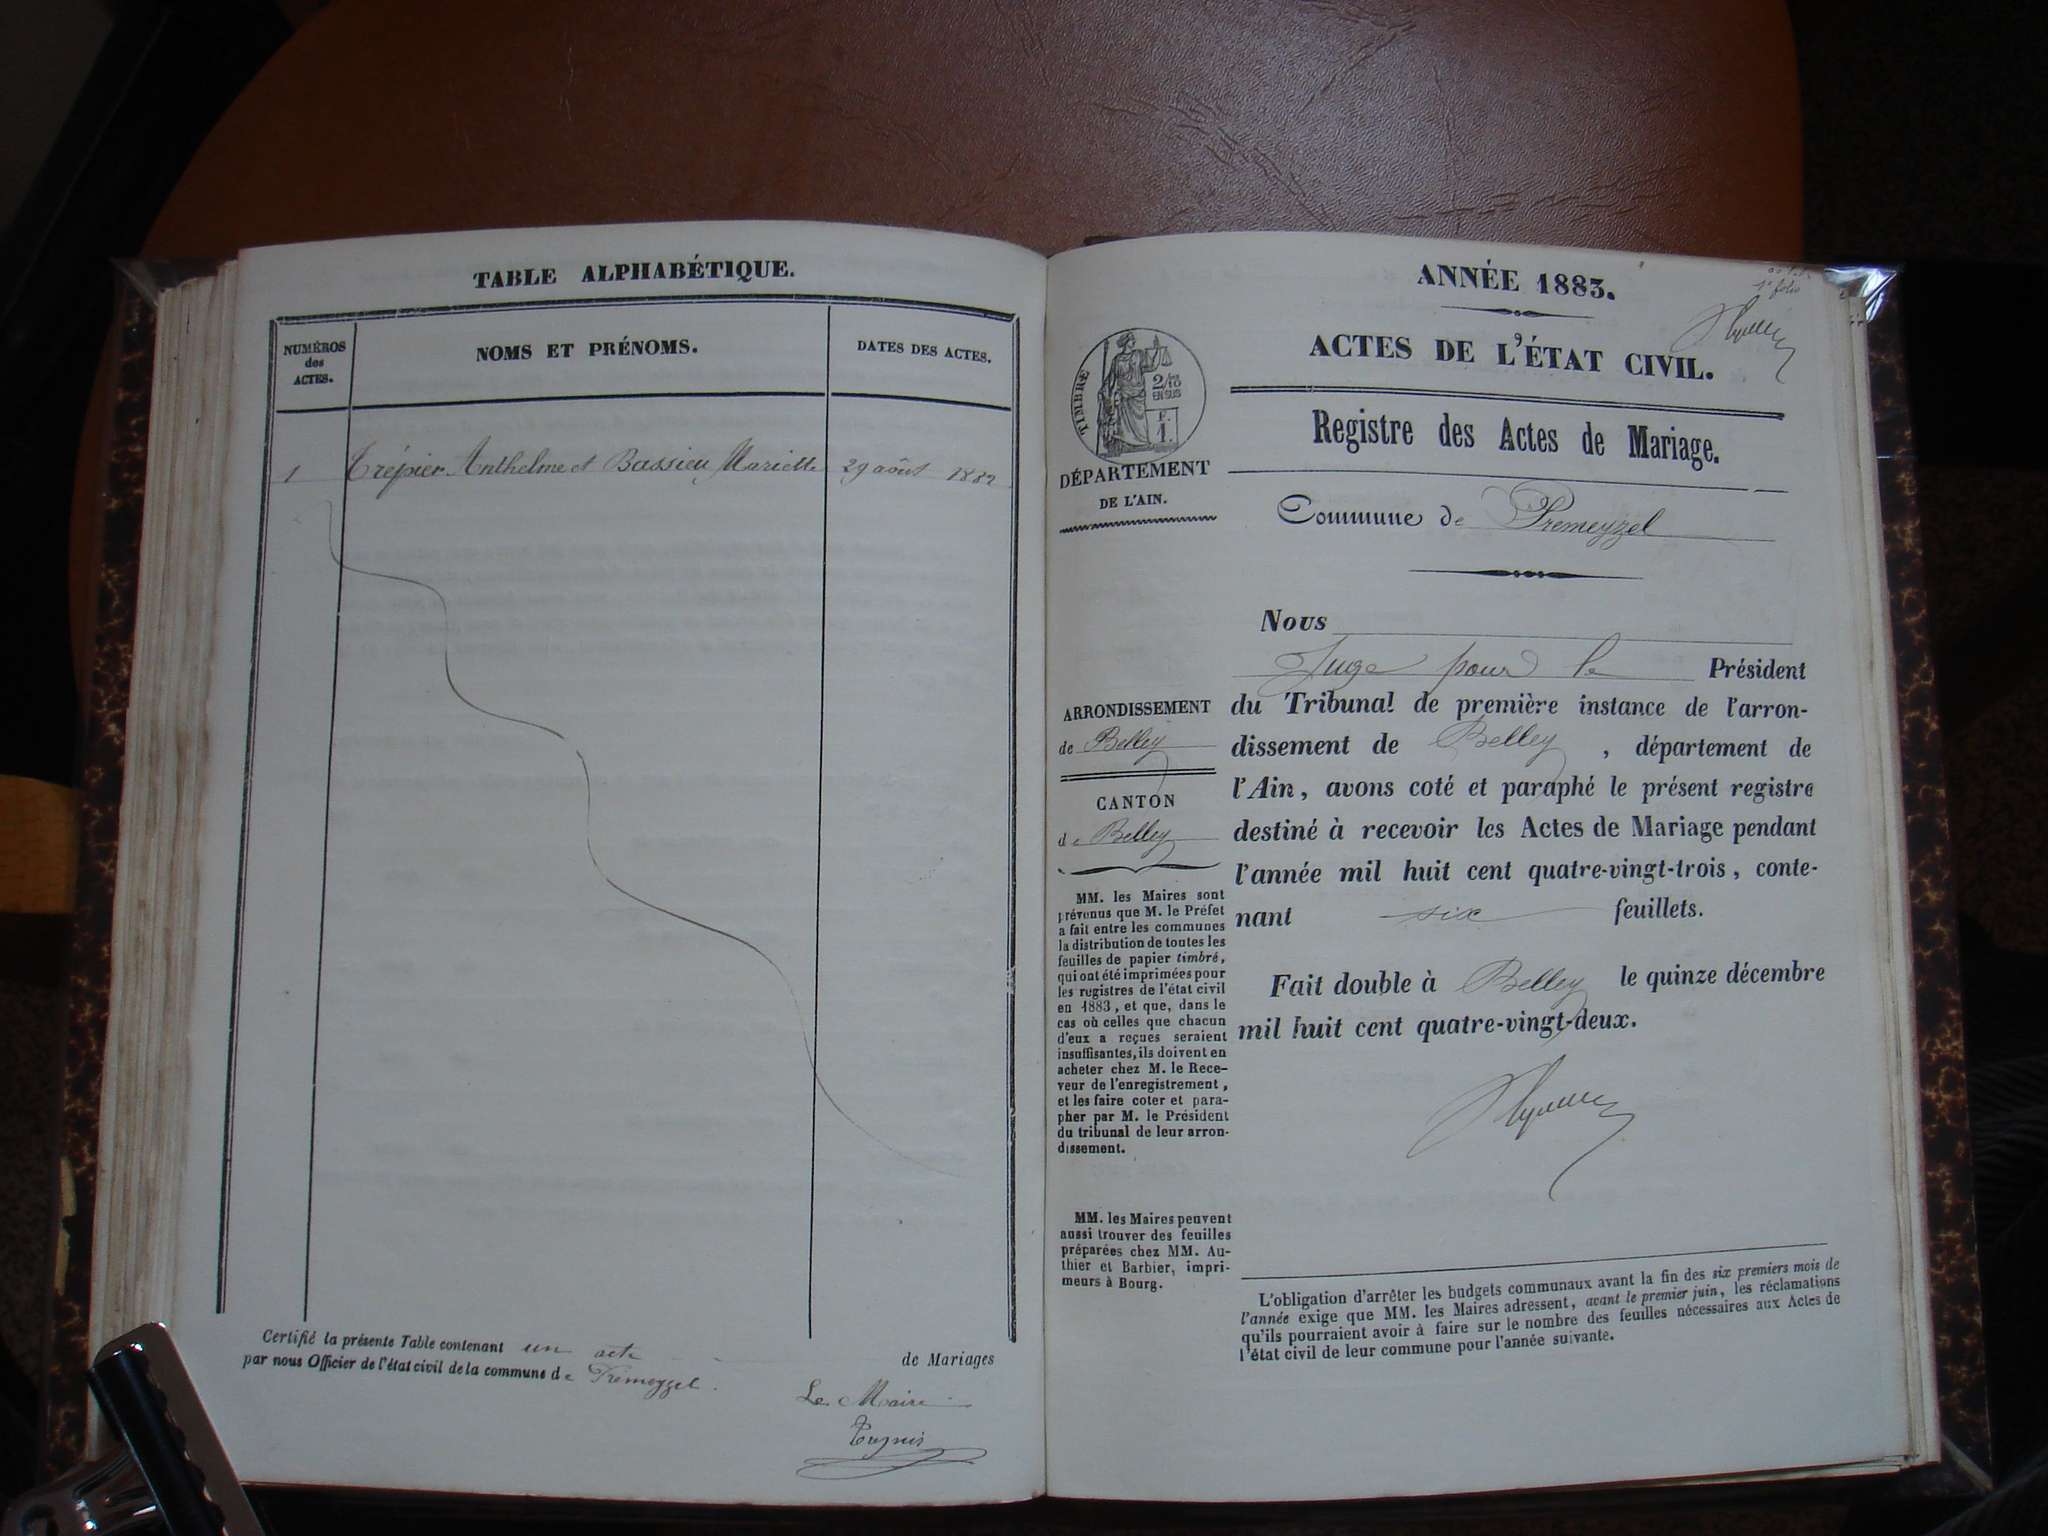 TABLE ALPHABÉTIQUE.
NUMÉROS
des
ACTES.
NOMS ET PRÉNOMS.
DATES DES ACTES.
1 Trépier Anthelme et Bassieu Mariette 29 août 1882
Certifié la présente Table contenant un acte de Mariages
par nous Officier de l'état civil de la commune de Premeyzel.
Le Maire
ANNÉE 1883.
1er folio
ACTES DE L'ÉTAT CIVIL.
Registre des Actes de Mariage.
TIMBRE
2/10
EN SUS
F.
1.
DÉPARTEMENT
DE L'AIN.
Commune de Premeyzel
ARRONDISSEMENT
de Belley
CANTON
de Belley
MM. les Maires sont
prévenus que M. le Préfet
a fait entre les communes
la distribution de toutes les
feuilles de papier timbré,
qui ont été imprimées pour
les registres de l'état civil
en 1883, et que, dans le
cas où celles que chacun
d'eux a reçues seraient
insuffisantes, ils doivent en
acheter chez M. le Rece-
veur de l'enregistrement,
et les faire coter et para-
pher par M. le Président
du tribunal de leur arron-
dissement.
MM. les Maires peuvent
aussi trouver des feuilles
préparées chez MM. Au-
thier et Barbier, impri-
meurs à Bourg.
Nous
Juge pour le Président
du Tribunal de première instance de l'arron-
dissement de Belley, département de
l'Ain, avons coté et paraphé le présent registre
destiné à recevoir les Actes de Mariage pendant
l'année mil huit cent quatre-vingt-trois, conte-
nant six feuillets.
Fait double à Belley le quinze décembre
mil huit cent quatre-vingt-deux.
L'obligation d'arrêter les budgets communaux avant la fin des six premiers mois de
l'année exige que MM. les Maires adressent, avant le premier juin, les réclamations
qu'ils pourraient avoir à faire sur le nombre des feuilles nécessaires aux Actes de
l'état civil de leur commune pour l'année suivante.